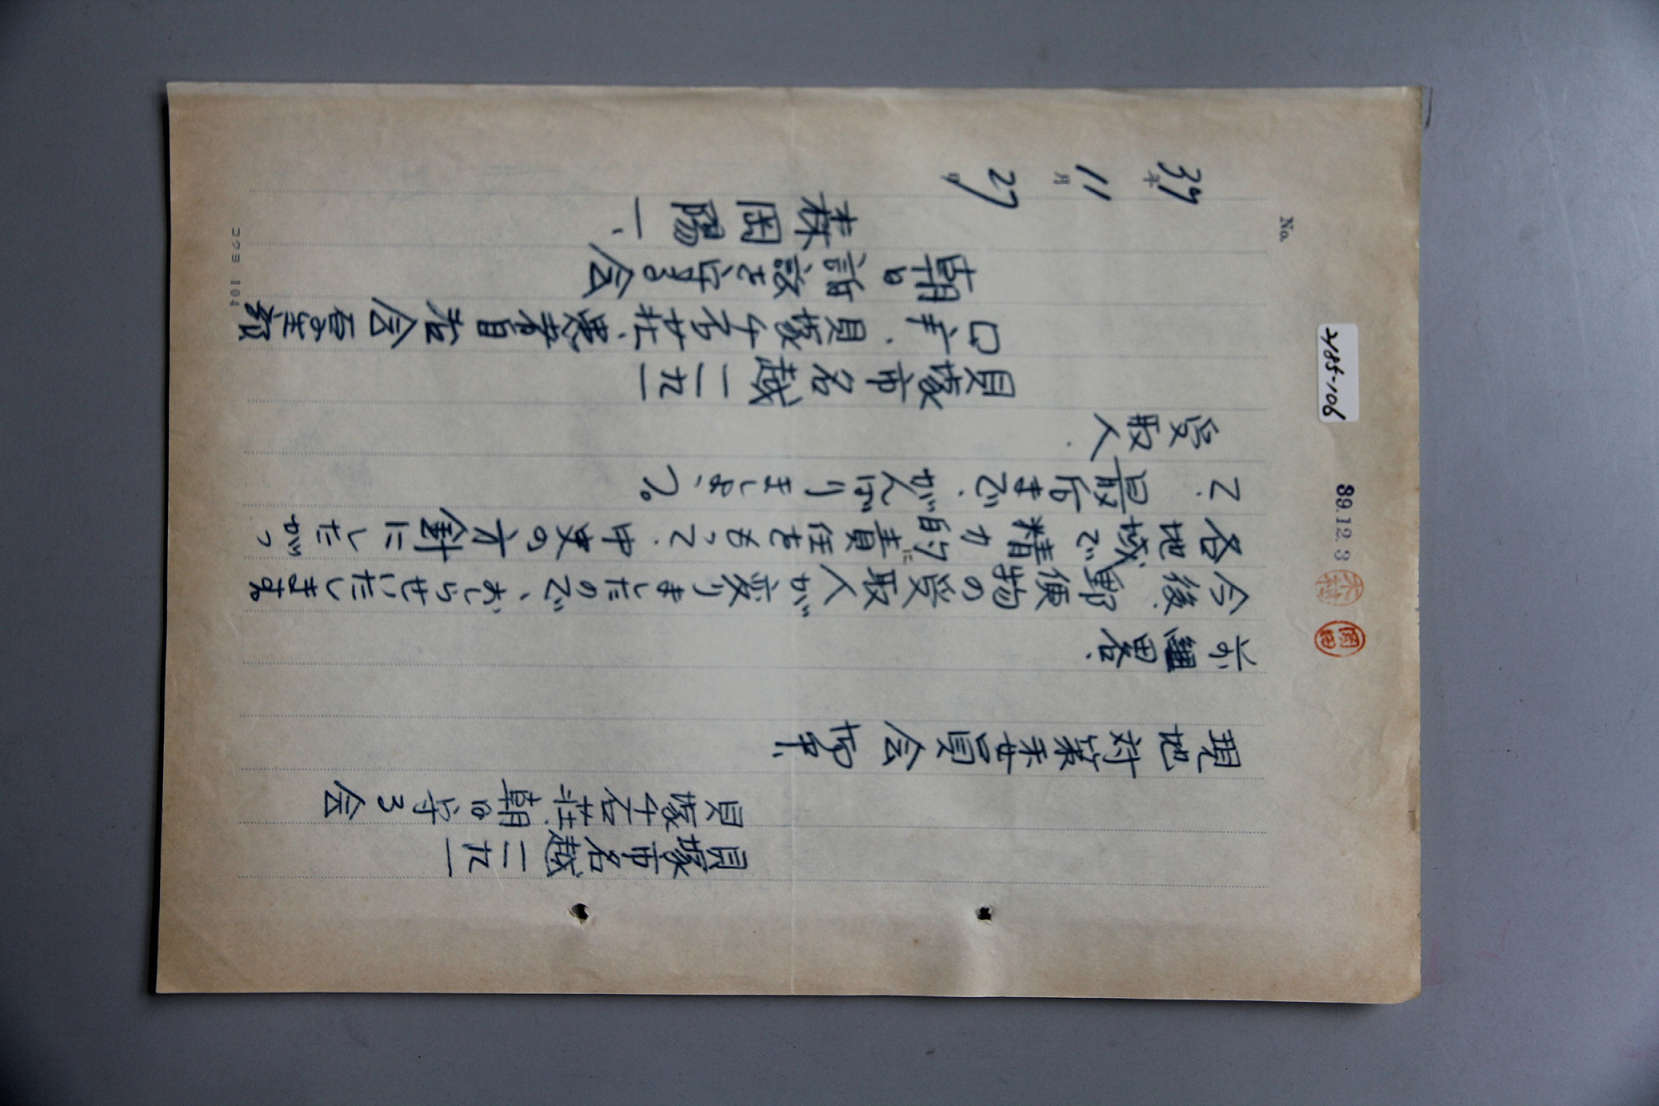 No.
貝塚市名越二九一
貝塚千石荘朝日守る会
現地対策委員会 御中、
前畧、
今後、郵便物の受取人が変りましたので、おしらせいたします。
各地域で精力的に責任をもって、中央の方針にしたがっ
て、最后まで、がんばりましょう。
受取人、
貝塚市名越二九一
貝塚千石荘、患者自治会厚生部
朝日訴訟を守る会
森岡陽一、
39年 11月 27日
コクヨ 104
2485-106
89.12.3
岡田